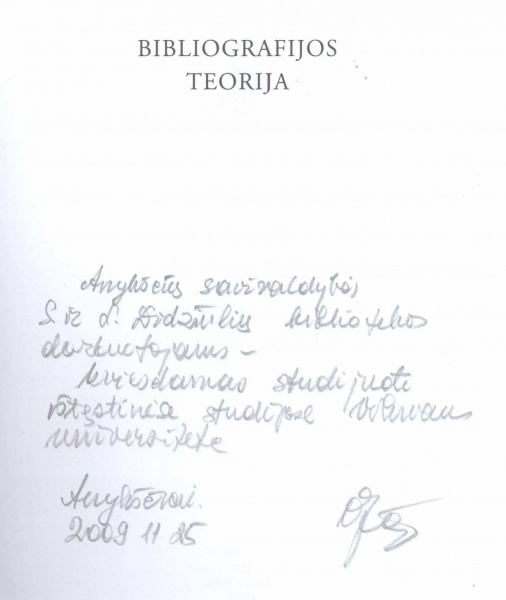 BIBLIOGRAFIJOS
TEORIJA
Anykščių savivaldybės
L. ir S. Didžiulių bibliotekos
darbuotojams –
kviesdamas studijuoti
tęstinėse studijose Vilniaus
universitete
Anykščiai.
2009 11 25